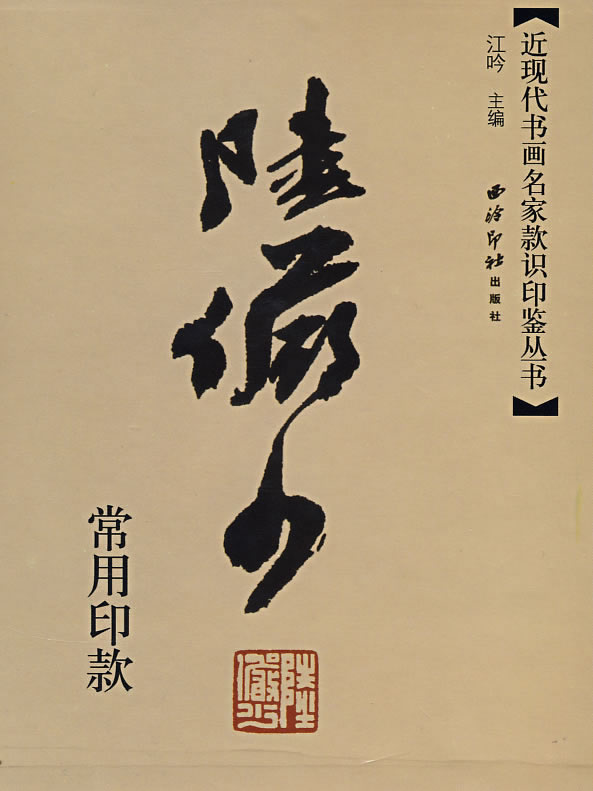 【近现代书画名家款识印鉴丛书】
江吟 主编
西泠印社出版社
陆俨少
常用印款
陸儼少